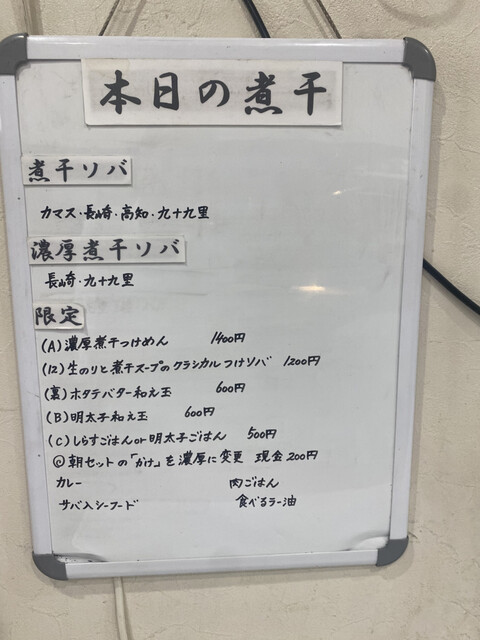 本日の煮干
煮干ソバ
カマス・長崎・高知・九十九里
濃厚煮干ソバ
長崎・九十九里
限定
(A)濃厚煮干つけめん 1400円
(12)生のりと煮干スープのクラシカルつけソバ 1200円
(裏)ホタテバター和え玉 600円
(B)明太子和え玉 600円
(C)しらすごはんor明太子ごはん 500円
◎朝セットの「かけ」を濃厚に変更 現金200円
カレー 肉ごはん
サバ入シーフード 食べるラー油